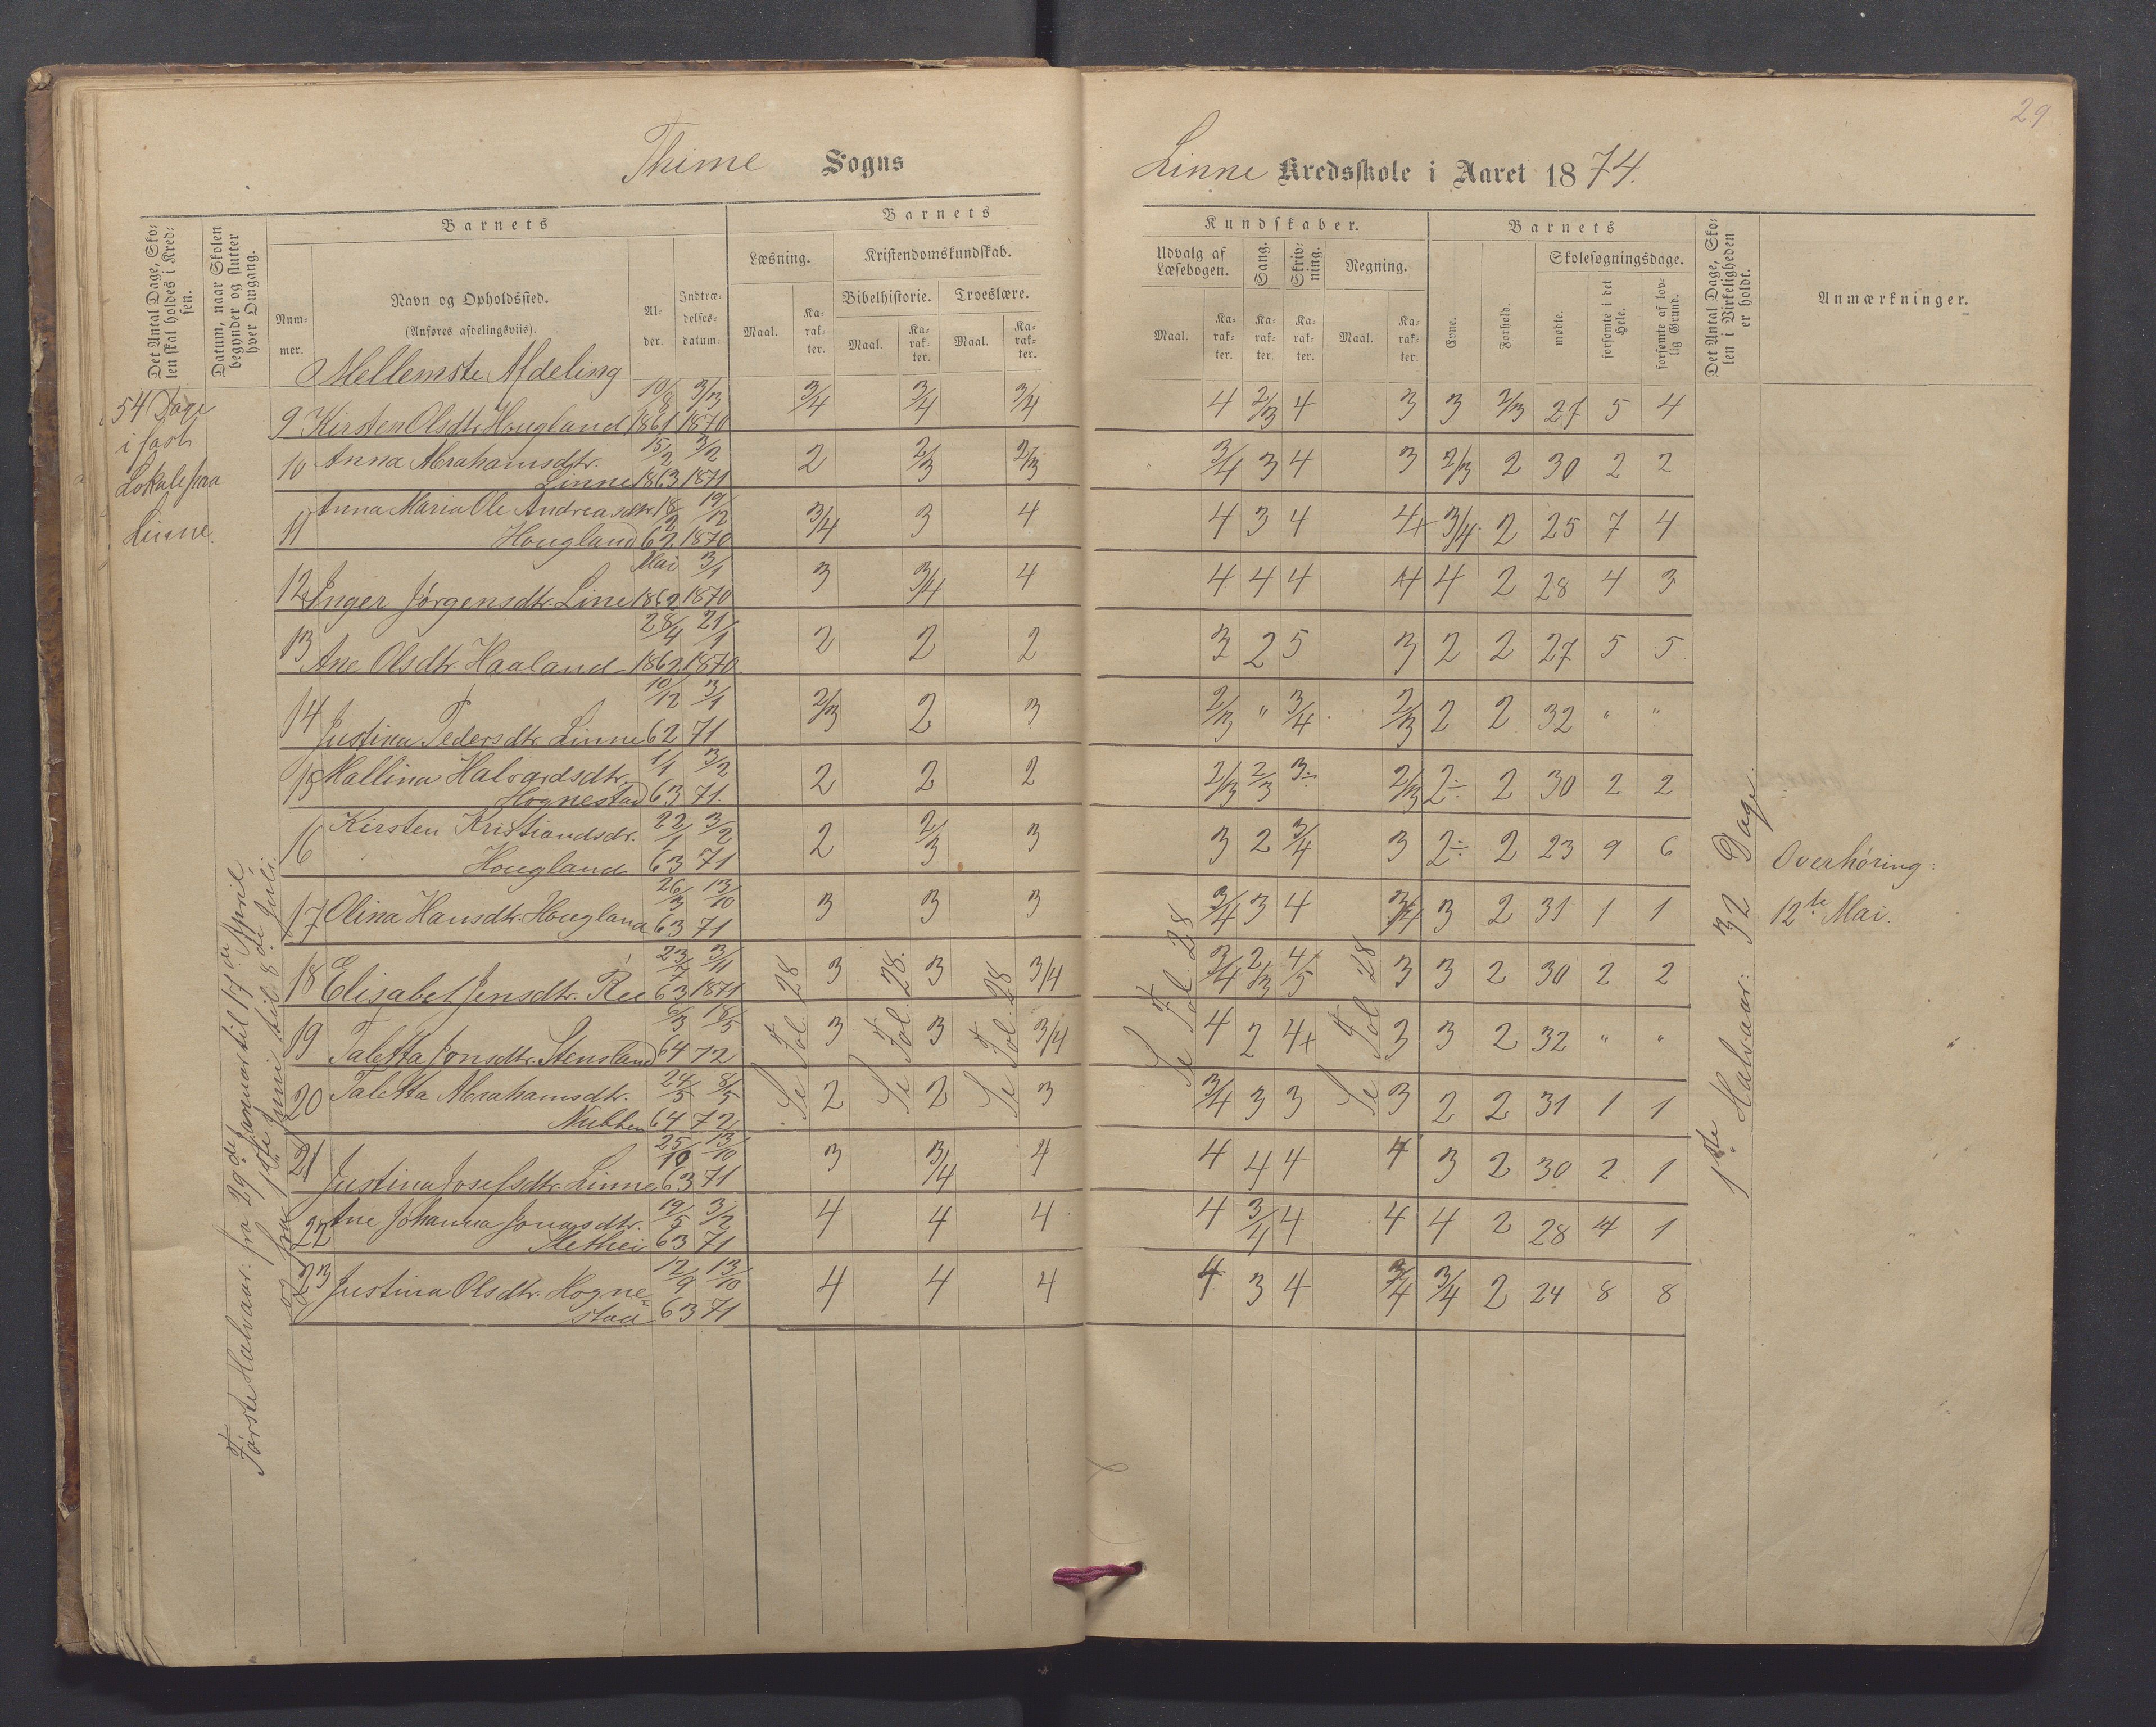 29
Thime Sogns
Linne Kredsskole i Aaret 1874.
Det Antal Dage, Skolen skal holdes i Kredsen.
Datum, naar Skolen begynder og slutter hver Omgang.
Barnets
Nummer.
Navn og Opholdssted.
(Anføres afdelingsviis).
Alder.
Indtrædelsesdatum.
Barnets
Læsning.
Kristendomskundskab.
Bibelhistorie. Troeslære.
Maal. Karakter. Maal. Karakter. Maal. Karakter.
Kundskaber.
Udvalg af Læsebogen. Sang. Skrivning. Regning.
Maal. Karakter. Karakter. Karakter. Maal. Karakter.
Barnets
Evne. Forhold.
Skolesøgningsdage.
mødte. forsømte i det Hele. forsømte af lovlig Grund.
Det Antal Dage, Skolen i Virkeligheden er holdt.
Anmærkninger.
Mellemste Afdeling
54 Dage
i fast
Lokale paa
Linne.
Første Halvaar: fra 29de Januar til 17de April
og fra 1ste Juni til 8de Juli.
9 Kirsten Olsdtr. Hougland 10/8 1861 3/3 1870 3/4 3/4 3/4 4 2/3 4 3 3 2/3 27 5 4
10 Anna Abrahamsdtr. 15/2 3/2 2 2/3 2/3 3/4 3 4 3 2/3 2 30 2 2
Linne 1863 1871
11 Anna Maria Ole Andreasdtr. 18/2 19/12 3/4 3 4 4 3 4 4+ 3/4 2 25 7 4
Hougland 62 1870
12 Inger Jørgensdtr. Line Mai 1862 3/1 1870 3 3/4 4 4 4 4 4 4 2 28 4 3
13 Ane Olsdtr. Haaland 28/4 1862 21/1 1870 2 2 2 3 2 5 3 2 2 27 5 5
14 Justina Pedersdtr. Linne 10/12 62 3/1 71 2/3 2 3 2/3 " 3/4 2/3 2 2 32 " "
15 Mallina Halvardsdtr. 1/1 3/2 2 2 2 2/3 2/3 3÷ 2/3 2÷ 2 30 2 2
Hognestad 63 71.
16 Kirsten Kristiandsdr. 22/1 3/2 2 2/3 3 3 2 3/4 3 2÷ 2 23 9 6
Hougland 63 71
17 Olina Hansdtr. Hougland 26/3 63 13/10 71 3 3 3 3/4 3 4 3/4 3 2 31 1 1
18 Elisabet Jensdtr. Ree 23/7 63 3/11 1871 3 3 3/4 3/4 2/3 4/5 3 3 2 30 2 2
19 Taletta Jonsdtr. Stensland 6/3 64 18/5 72 3 3 3/4 4 2 4+ 3 3 2 32 " "
20 Taletta Abrahamsdtr. 24/5 8/5 2 2 3 3/4 3 3 3 2 2 31 1 1
Nubben 64 72
21 Justina Josefsdtr. Linne 25/10 63 13/10 71 3 3/4 4 4 4 4 4 3 2 30 2 1
22 Ane Johanna Jonasdtr. 19/5 3/2 4 4 4 4 3/4 4 4 4 2 28 4 1
Slethei 63 71
23 Justina Olsdtr. Hogne= 12/9 13/10 4 4 4 4 3 4 3/4 3/4 2 24 8 8
stad 63 71
Se Fol. 28
Se Fol. 28.
Se Fol. 28
Se Fol. 28
Se Fol. 28
1ste Halvaar: 32 Dage.
Overhøring:
12te Mai.